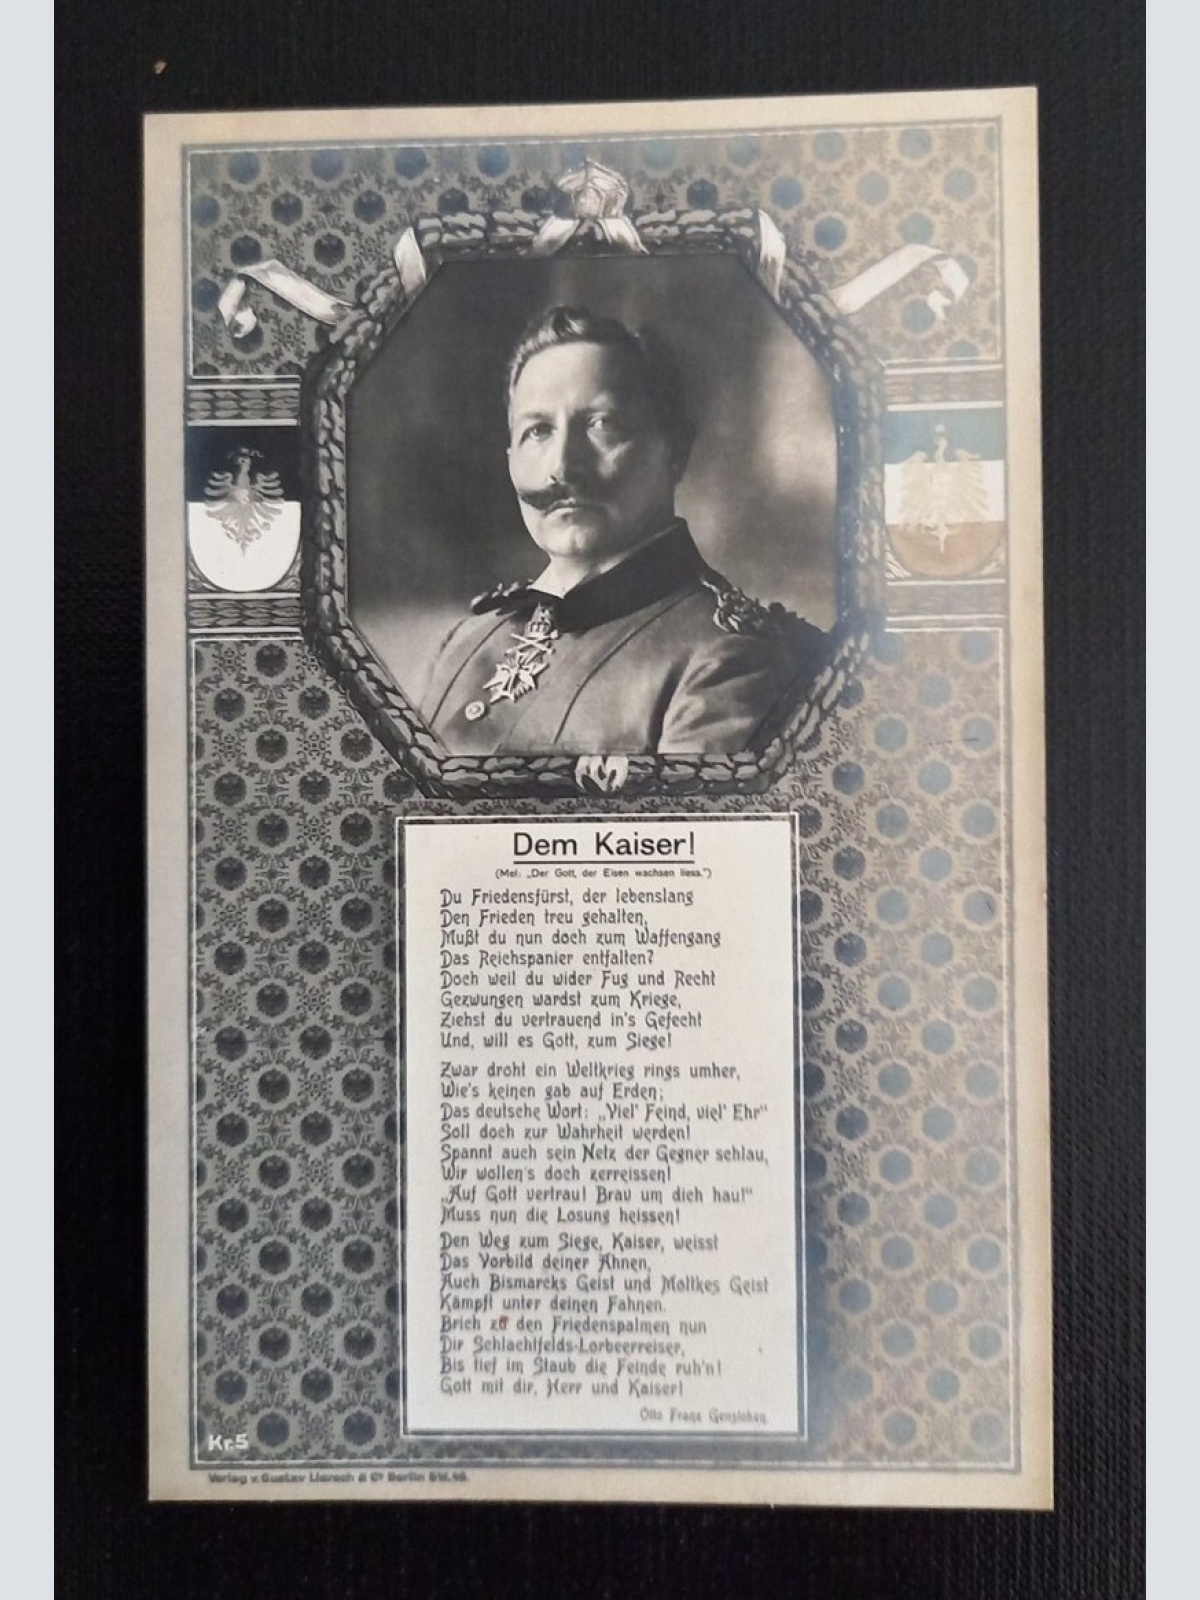 Dem Kaiser!
(Mel: „Der Gott, der Eisen wachsen liess.")
Du Friedensfürst, der lebenslang
Den Frieden treu gehalten,
Mußt du nun doch zum Waffengang
Das Reichspanier entfalten?
Doch weil du wider Fug und Recht
Gezwungen wardst zum Kriege,
Ziehst du vertrauend in's Gefecht
Und, will es Gott, zum Siege!
Zwar droht ein Weltkrieg rings umher,
Wie's keinen gab auf Erden;
Das deutsche Wort: „Viel' Feind, viel' Ehr"
Soll doch zur Wahrheit werden!
Spannt auch sein Netz der Gegner schlau,
Wir wollen's doch zerreissen!
„Auf Gott vertrau! Brav um dich hau!"
Muss nun die Losung heissen!
Den Weg zum Siege, Kaiser, weisst
Das Vorbild deiner Ahnen,
Auch Bismarcks Geist und Moltkes Geist
Kämpft unter deinen Fahnen.
Brich zu den Friedenspalmen nun
Dir Schlachtfelds-Lorbeerreiser,
Bis tief im Staub die Feinde ruh'n!
Gott mit dir, Herr und Kaiser!
Otto Franz Gensichen
Kr.5
Verlag v. Gustav Liersch & Co Berlin SW. 48.